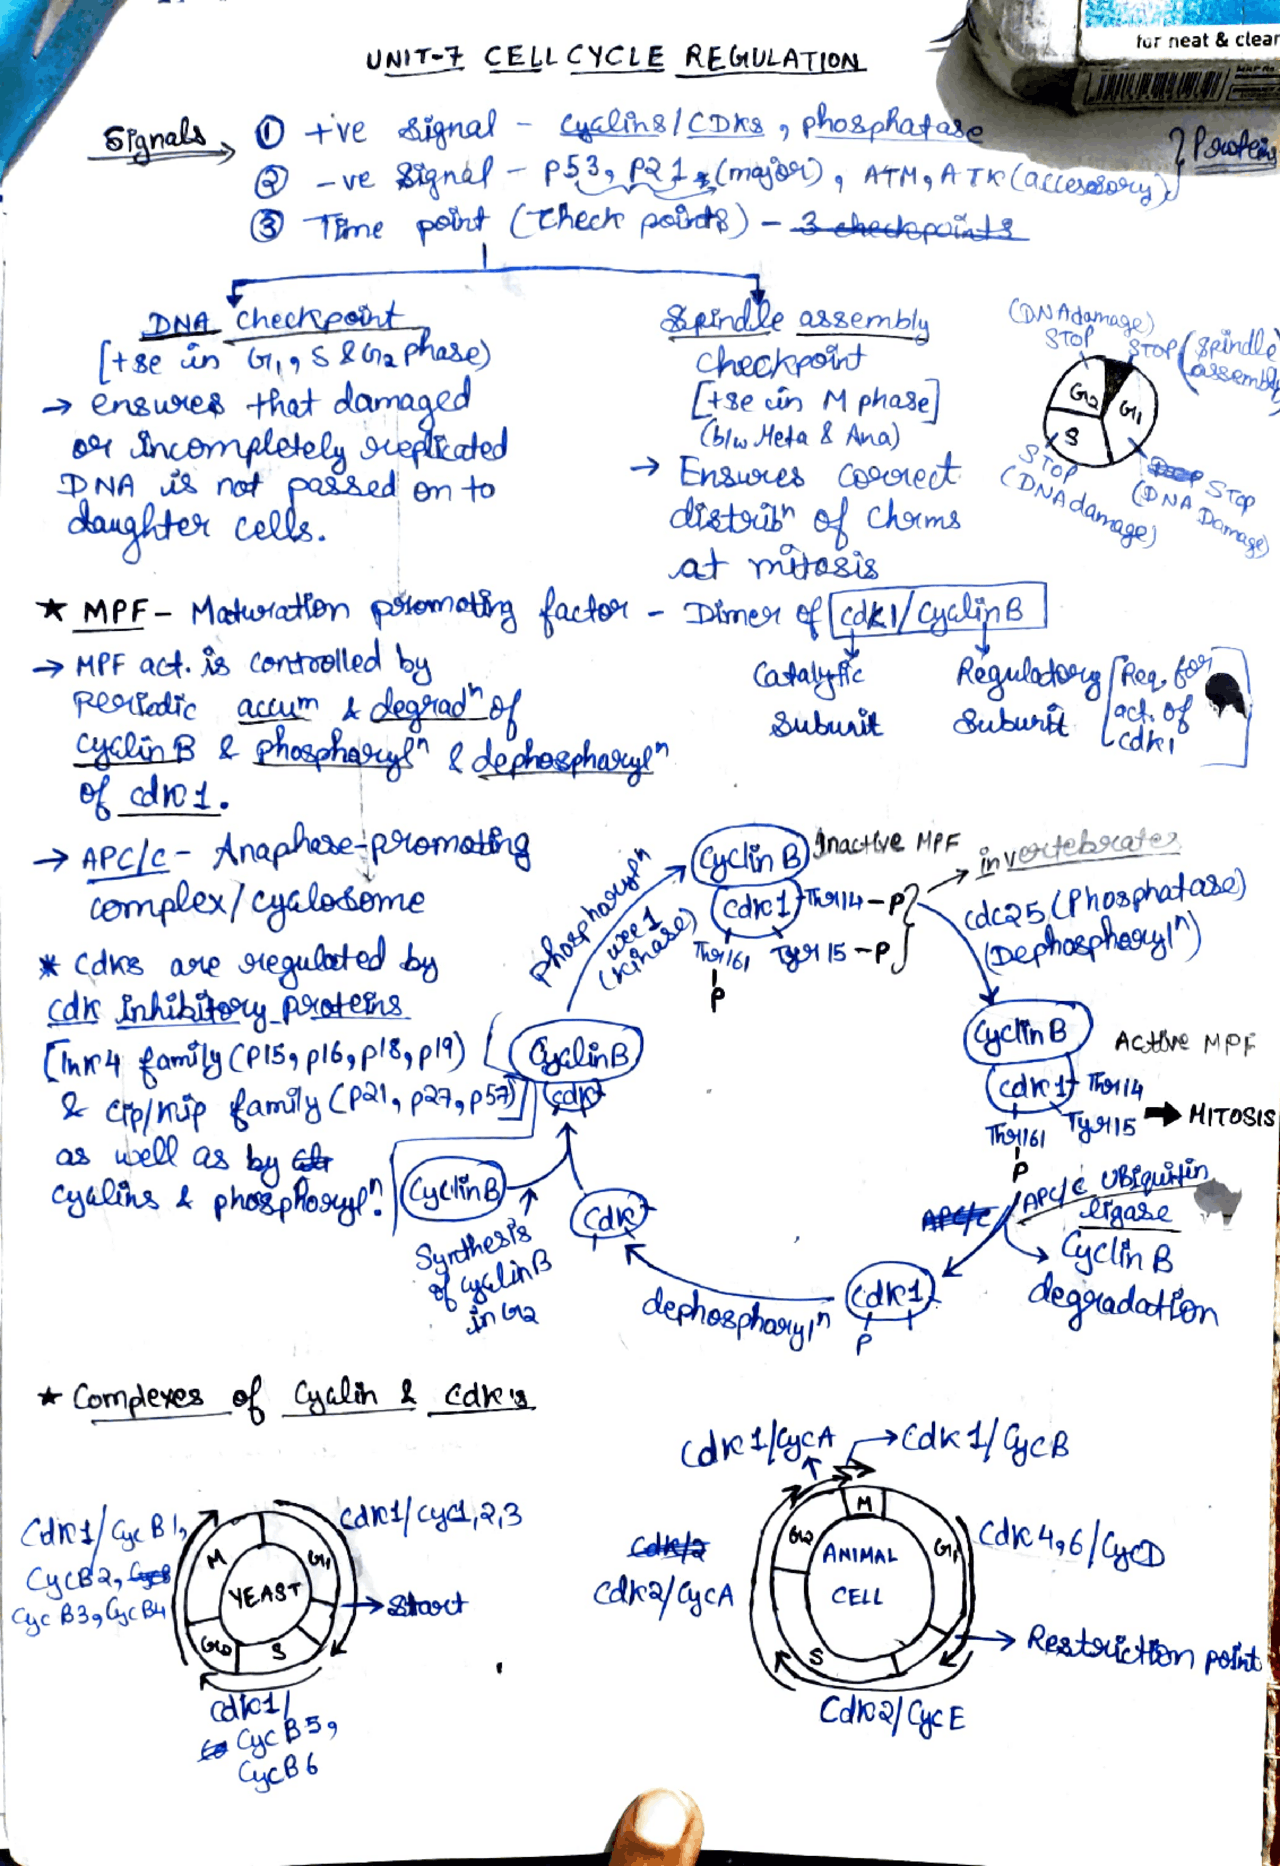 for neat & clear
UNIT-7 CELL CYCLE REGULATION
Signals
① +ve signal - cyclins/CDKs, phosphatase
② -ve signal - P53, P21 (major), ATM, ATK (accessory)
} Protein
③ Time point (Check points) - 3 checkpoints
DNA checkpoint
[+se in G1, S & G2 phase)
→ ensures that damaged
or incompletely replicated
DNA is not passed on to
daughter cells.
Spindle assembly
checkpoint
[+se in M phase]
(b/w Meta & Ana)
→ Ensures correct
distribⁿ of chrms
at mitosis
(DNA damage)
STOP
STOP (spindle
assembly
G2
G1
S
STOP
(DNA damage)
STOP
(DNA Damage)
★ MPF - Maturation promoting factor - Dimer of cdk1/cyclinB
Catalytic
Subunit
Regulatory
Subunit
[Req. for
act. of
cdk1
→ MPF act. is controlled by
Periodic accum & degradⁿ of
cyclin B & phosphorylⁿ & dephosphorylⁿ
of cdk1.
→ APC/C - Anaphase-promoting
complex/cyclosome
* Cdks are regulated by
cdk inhibitory proteins
[Ink4 family (P15, p16, p18, p19)
& Cip/Kip family (P21, p27, p57)]
as well as by
cyclins & phosphorylⁿ.
phosphorylⁿ
wee1
(kinase)
Cyclin B
Inactive MPF
Cdk1 Thr14-P
Thr161 Tyr15-P
P
→ invertebrates
cdc25 (Phosphatase)
(Dephosphorylⁿ)
Cyclin B
Active MPF
cdk1 Thr14
Thr161 Tyr15 → MITOSIS
P
APC/C APC/C Ubiquitin
ligase
Cyclin B
degradation
Cdk1
P
dephosphorylⁿ
Cdk
Cyclin B
Synthesis
of cyclinB
in G2
Cyclin B
cdk
★ Complexes of Cyclin & Cdk's
Cdk1/Cyc B1,
CycB2,
Cyc B3, CycB4
Cdk1/cyc1,2,3
M
G1
YEAST
→ Start
S
Cdk1/
Cyc B5,
CycB6
Cdk1/CycA
→ Cdk1/CycB
M
G2
G1
ANIMAL
CELL
S
Cdk/2
Cdk2/CycA
Cdk4,6/CycD
→ Restriction point
Cdk2/CycE